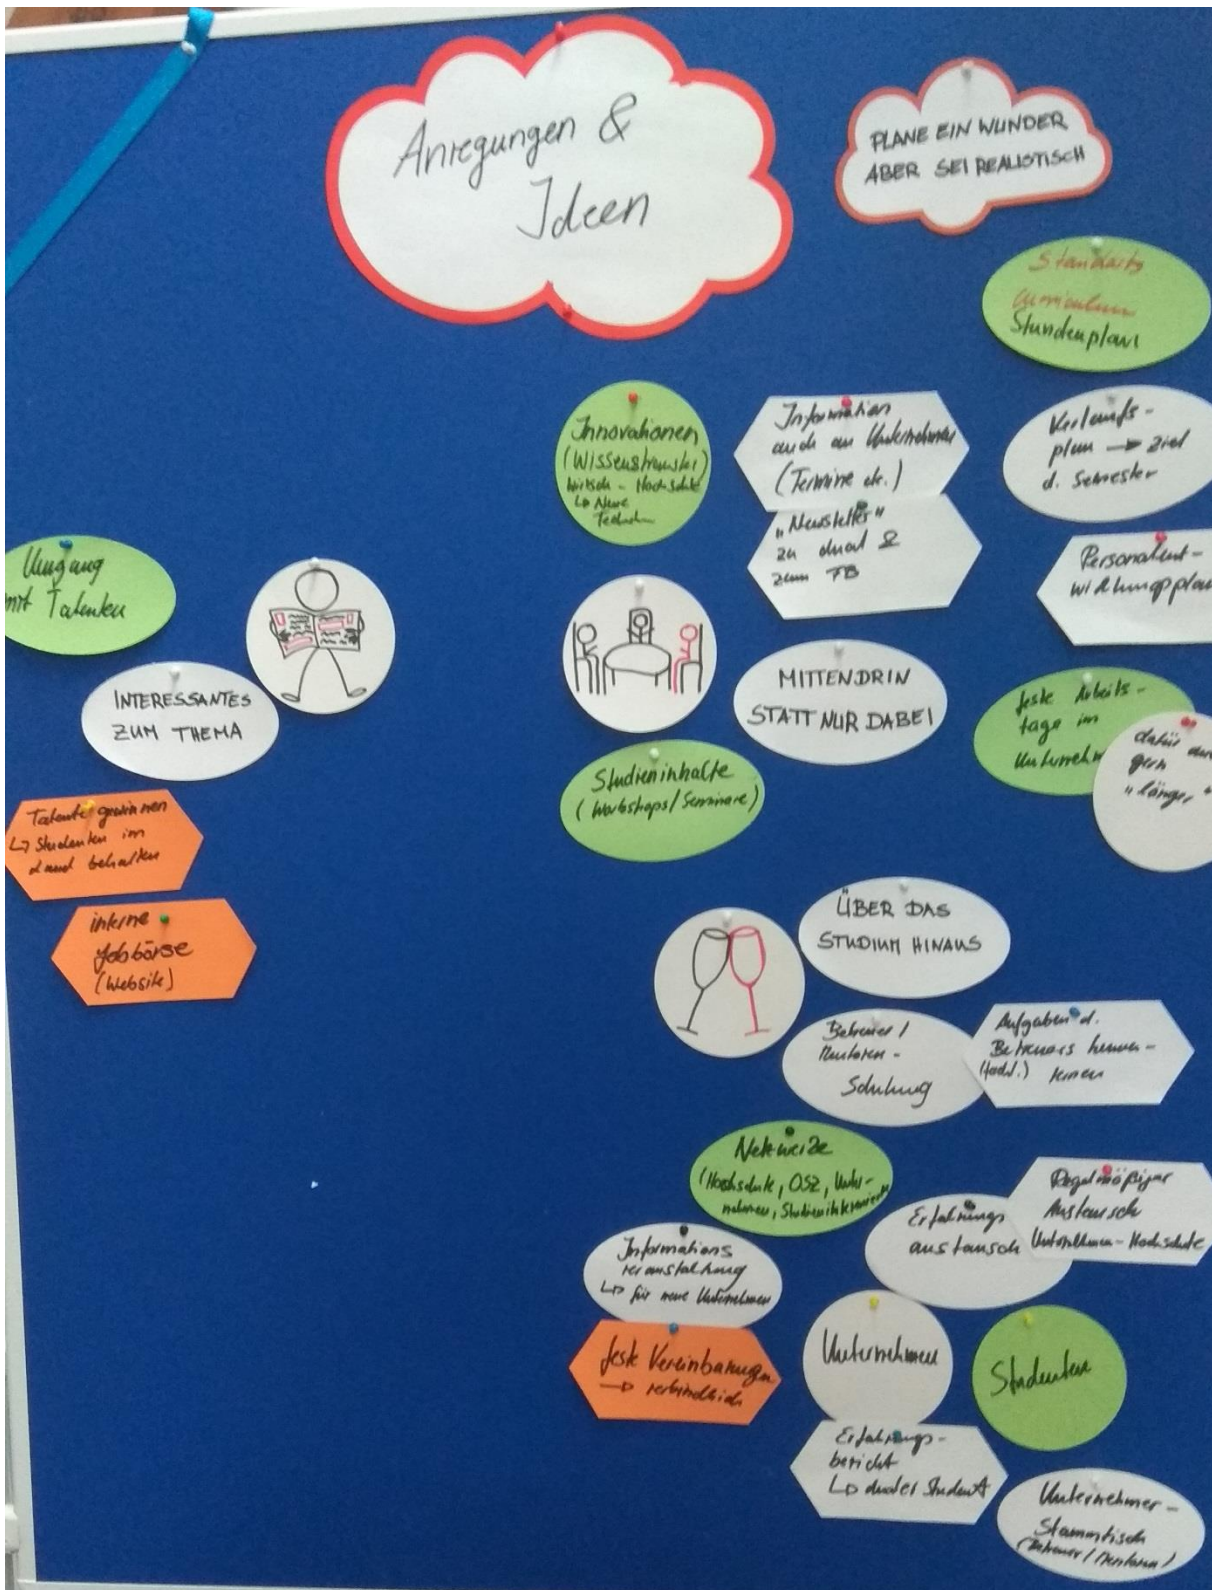 Anregungen &
Ideen
PLANE EIN WUNDER
ABER SEI REALISTISCH
Standarts
Curriculum
Stundenplan
Innovationen
(Wissenstransfer)
Wirtsch - Hochschule
↳ Neue
Techn
Information
auch an Unternehmen
(Termine etc.)
"Newsletter"
zu dual &
zum TB
Verlaufs-
plan → Ziel
d. Semester
Personalent-
wicklungsplan
Umgang
mit Talenten
INTERESSANTES
ZUM THEMA
MITTENDRIN
STATT NUR DABEI
feste Arbeits-
tage im
Unternehm
dafür
gern
"länger"
Studieninhalte
(Workshops/Seminare)
Talente gewinnen
↳ Studenten im
Land behalten
interne
Jobbörse
(Website)
ÜBER DAS
STUDIUM HINAUS
Betreuer/
Mentoren-
Schulung
Aufgaben d.
Betreuers kennen-
(Hochs.) lernen
Netzwerke
(Hochschule, OSZ, Unter-
nehmen, Studieninteressierte
Erfahrungs
austausch
Regelmäßiger
Austausch
Unternehmen-Hochschule
Informations
veranstaltung
↳ für neue Unternehmen
feste Vereinbarungen
→ verbindlich
Unternehmen
Studenten
Erfahrungs-
bericht
↳ dualer Student
Unternehmer-
Stammtisch
(Betreuer/Mentoren)